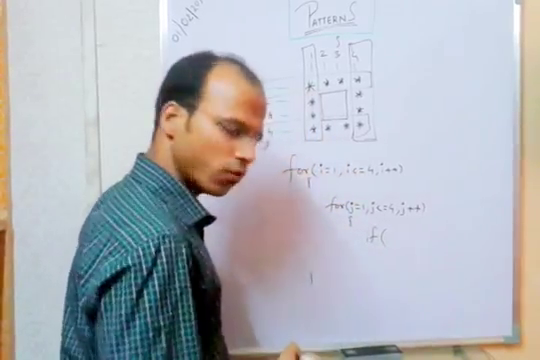 01/02/20
PATTERNS
j
1 2 3 4
* * * *
* *
* *
* * * *
for(i=1, i<=4, i++)
{
for(j=1, j<=4, j++)
{
if(